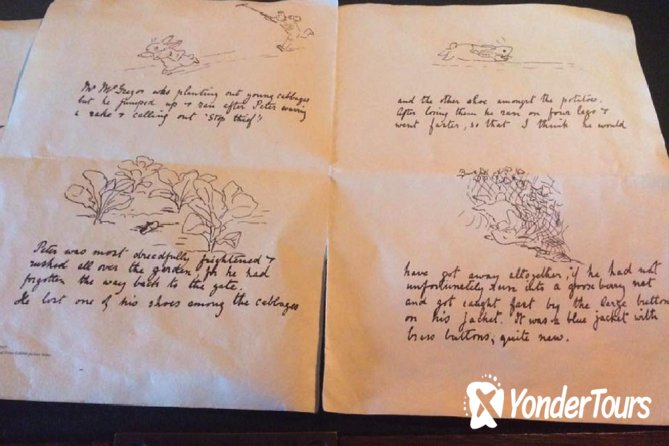 Mr McGregor was planting out young cabbages
but he jumped up & ran after Peter waving
a rake & calling out 'Stop thief'!
Peter was most dreadfully frightened &
rushed all over the garden, for he had
forgotten the way back to the gate.
He lost one of his shoes among the cabbages
and the other shoe amongst the potatoes.
After losing them he ran on four legs &
went faster, so that I think he would
have got away altogether, if he had not
unfortunately run into a gooseberry net
and got caught fast by the large buttons
on his jacket. It was a blue jacket with
brass buttons, quite new.
YonderTours